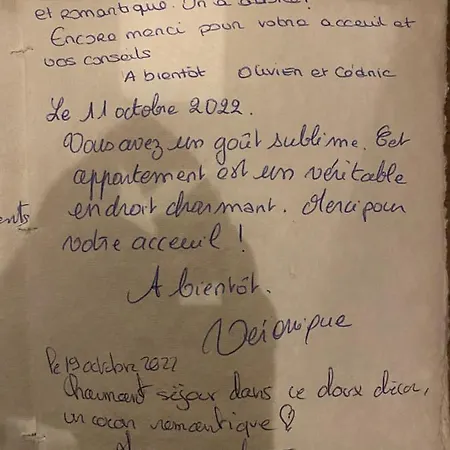 et romantique. Un
Encore merci pour votre acceuil et
vos conseils
A bientôt Olivier et Cédric
Le 11 octobre 2022.
Vous avez un goût sublime. Cet
appartement est un véritable
endroit charmant. Merci pour
ents
votre acceuil !
A bientôt.
Véronique
Le 19 octobre 2022
Charmant séjour dans ce doux décor,
un cocon romantique